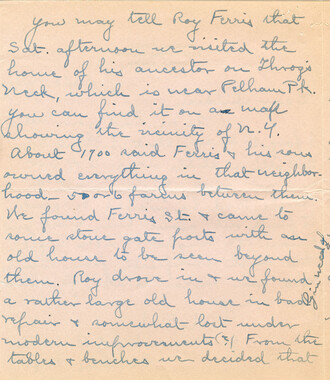 You may tell Roy Ferris that
Sat. afternoon we visited the
home of his ancestor on Throgs
Neck, which is near Pelham Pk.
You can find it on a map
showing the vicinity of N.Y.
About 1700 said Ferris & his sons
owned everything in that neighbor-
hood - 5 or 6 farms between them.
We found Ferris St. & came to
some stone gate posts with an
old house to be seen beyond
them. Roy drove in & we found
a rather large old house in bad
repair & somewhat lost under
modern improvements (?) From the
tables & benches we decided that